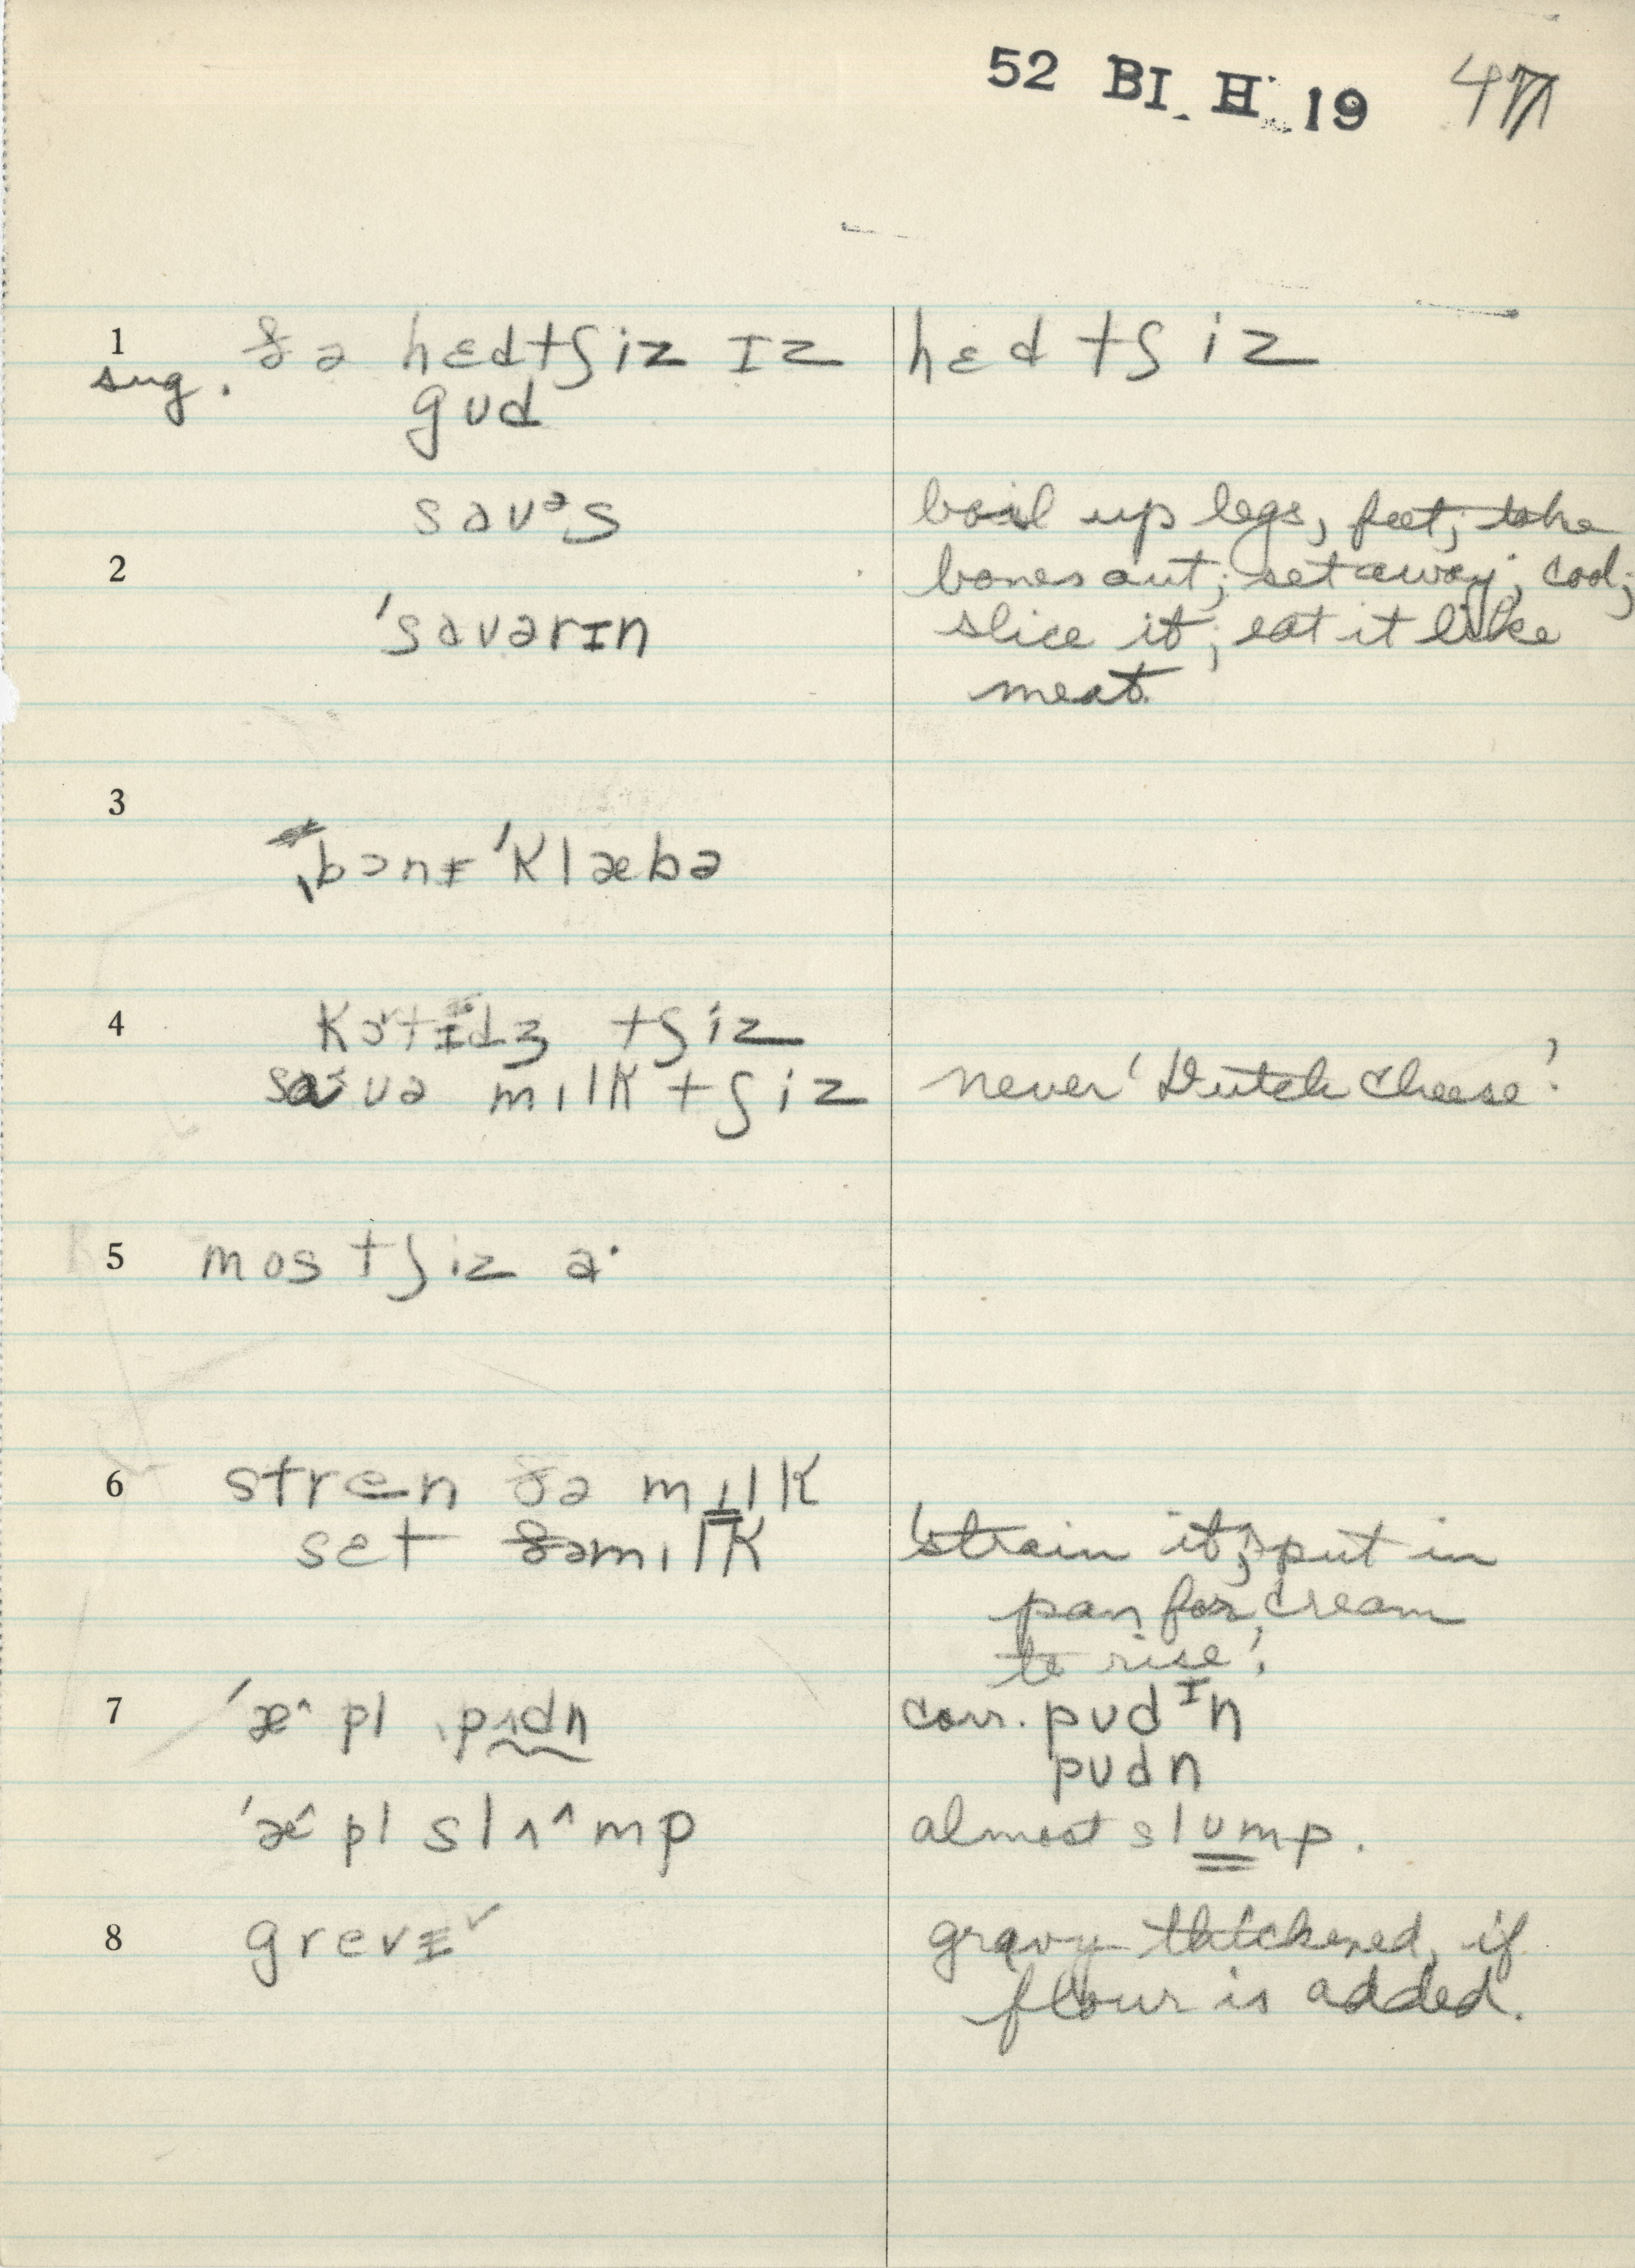 52 BI H 19 47
1 ðə hɛdtʃiz ɪz hɛd tʃiz
sug. gud
sauᵊs boil up legs, feet; take
2 bones out; set away; cool;
ˈsauərɪn slice it; eat it like
meat.
3
ˌbɔnɪ ˈklæbə
4 kɔtɪdʒ tʃiz
sauə mɪlk tʃiz never 'Dutch cheese'
5 mos tʃiz ə·
6 stren ðə mɪlk
set ðəmɪlk 'strain it; put in
pan for cream
to rise'.
7 ˈæ^ pl ˌpʌdn corr. pudᴵn
pudn
ˈæ^ pl slʌ^mp almost slump.
8 grevɪˇ gravy thickened, if
flour is added.